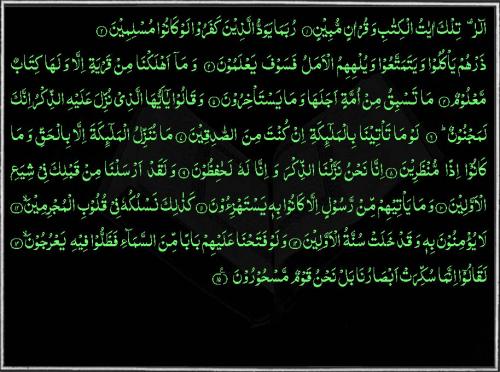 الٓرٰ ۫ تِلْكَ اٰیٰتُ الْكِتٰبِ وَ قُرْاٰنٍ مُّبِیْنٍ ﴿۱﴾ رُبَمَا یَوَدُّ الَّذِیْنَ كَفَرُوْا لَوْ كَانُوْا مُسْلِمِیْنَ ﴿۲﴾
ذَرْهُمْ یَاْكُلُوْا وَ یَتَمَتَّعُوْا وَ یُلْهِهِمُ الْاَمَلُ فَسَوْفَ یَعْلَمُوْنَ ﴿۳﴾ وَ مَاۤ اَهْلَكْنَا مِنْ قَرْیَةٍ اِلَّا وَ لَهَا كِتَابٌ
مَّعْلُوْمٌ ﴿۴﴾ مَا تَسْبِقُ مِنْ اُمَّةٍ اَجَلَهَا وَ مَا یَسْتَاْخِرُوْنَ ﴿۵﴾ وَ قَالُوْا یٰۤاَیُّهَا الَّذِیْ نُزِّلَ عَلَیْهِ الذِّكْرُ اِنَّكَ
لَمَجْنُوْنٌ ؕ﴿۶﴾ لَوْ مَا تَاْتِیْنَا بِالْمَلٰٓىِٕكَةِ اِنْ كُنْتَ مِنَ الصّٰدِقِیْنَ ﴿۷﴾ مَا نُنَزِّلُ الْمَلٰٓىِٕكَةَ اِلَّا بِالْحَقِّ وَ مَا
كَانُوْۤا اِذًا مُّنْظَرِیْنَ ﴿۸﴾ اِنَّا نَحْنُ نَزَّلْنَا الذِّكْرَ وَ اِنَّا لَهٗ لَحٰفِظُوْنَ ﴿۹﴾ وَ لَقَدْ اَرْسَلْنَا مِنْ قَبْلِكَ فِیْ شِیَعِ
الْاَوَّلِیْنَ ﴿۱۰﴾ وَ مَا یَاْتِیْهِمْ مِّنْ رَّسُوْلٍ اِلَّا كَانُوْا بِهٖ یَسْتَهْزِءُوْنَ ﴿۱۱﴾ كَذٰلِكَ نَسْلُكُهٗ فِیْ قُلُوْبِ الْمُجْرِمِیْنَ ﴿۱۲﴾
لَا یُؤْمِنُوْنَ بِهٖ وَ قَدْ خَلَتْ سُنَّةُ الْاَوَّلِیْنَ ﴿۱۳﴾ وَ لَوْ فَتَحْنَا عَلَیْهِمْ بَابًا مِّنَ السَّمَآءِ فَظَلُّوْا فِیْهِ یَعْرُجُوْنَ ﴿۱۴﴾
لَقَالُوْۤا اِنَّمَا سُكِّرَتْ اَبْصَارُنَا بَلْ نَحْنُ قَوْمٌ مَّسْحُوْرُوْنَ ﴿۱۵﴾